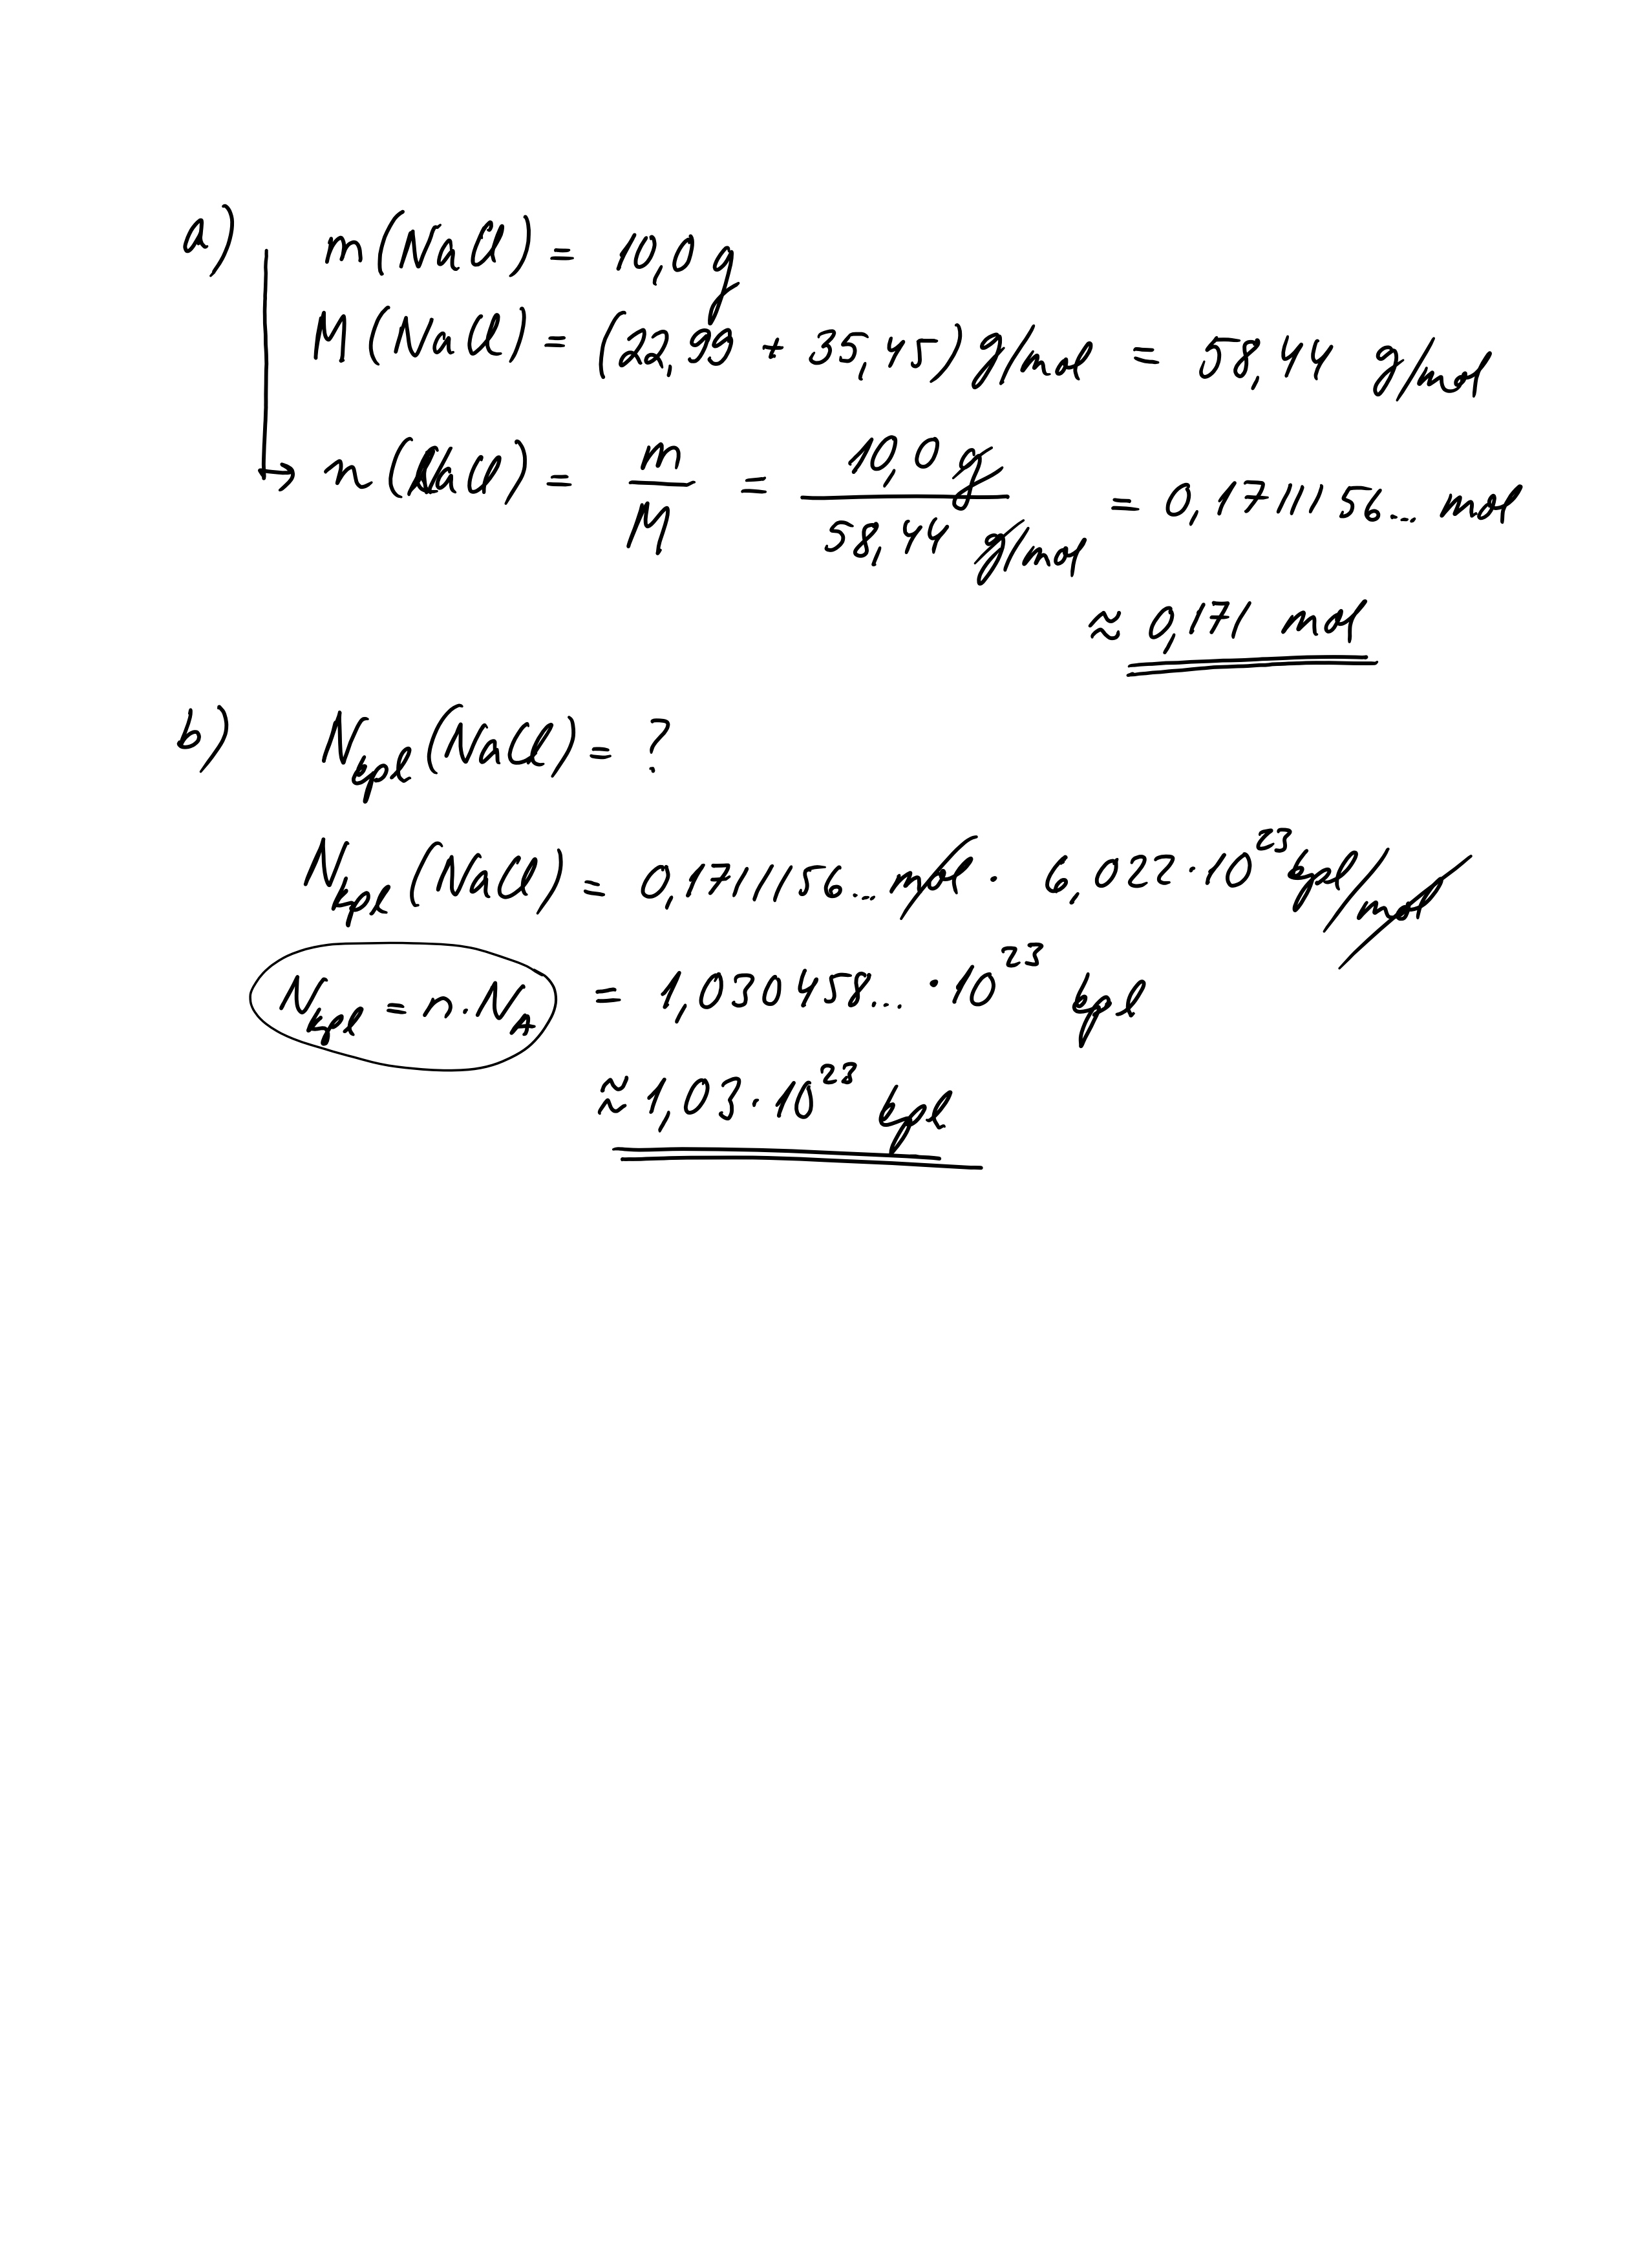 a) m(NaCl) = 10,0 g
M(NaCl) = (22,99 + 35,45) g/mol = 58,44 g/mol
→ n(NaCl) = m/M = 10,0 g / 58,44 g/mol = 0,1711156... mol
≈ 0,171 mol
b) N_kpl (NaCl) = ?
N_kpl (NaCl) = 0,1711156... mol · 6,022 · 10^23 kpl/mol
N_kpl = n · N_A = 1,030458... · 10^23 kpl
≈ 1,03 · 10^23 kpl